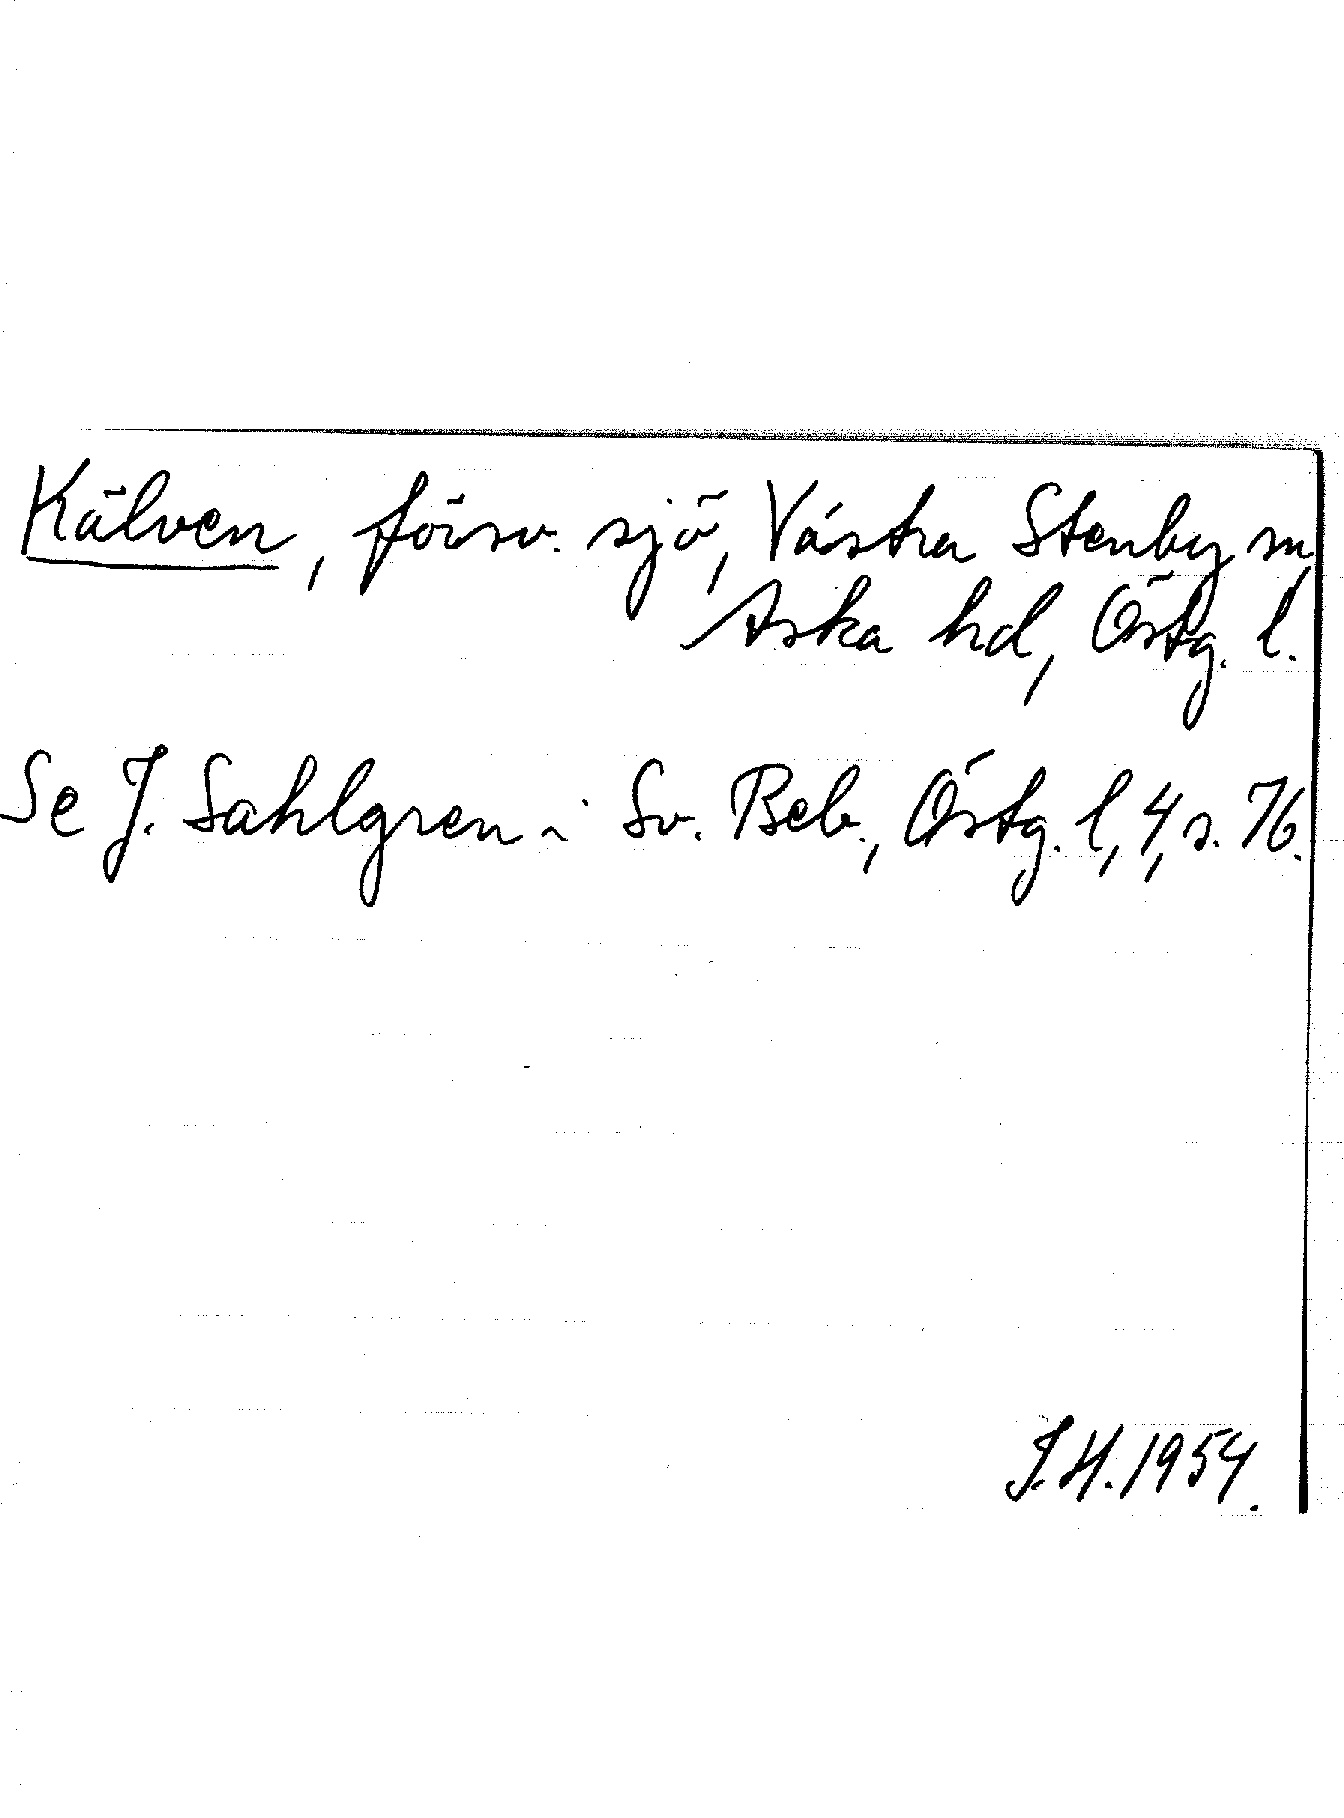 Kälven, försv. sjö, Västra Stenby sn,
Aska hd, Östg. l.
Se J. Sahlgren i Sv. Beb., Östg. l, 4, s. 76.
J.H. 1954.